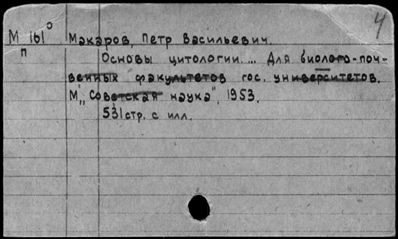 4
М 161⁰ Макаров, Петр Васильевич.
п Основы цитологии.... Для биолого-поч-
венных факультетов гос. университетов.
М., "Советская наука", 1953.
531 стр. с илл.